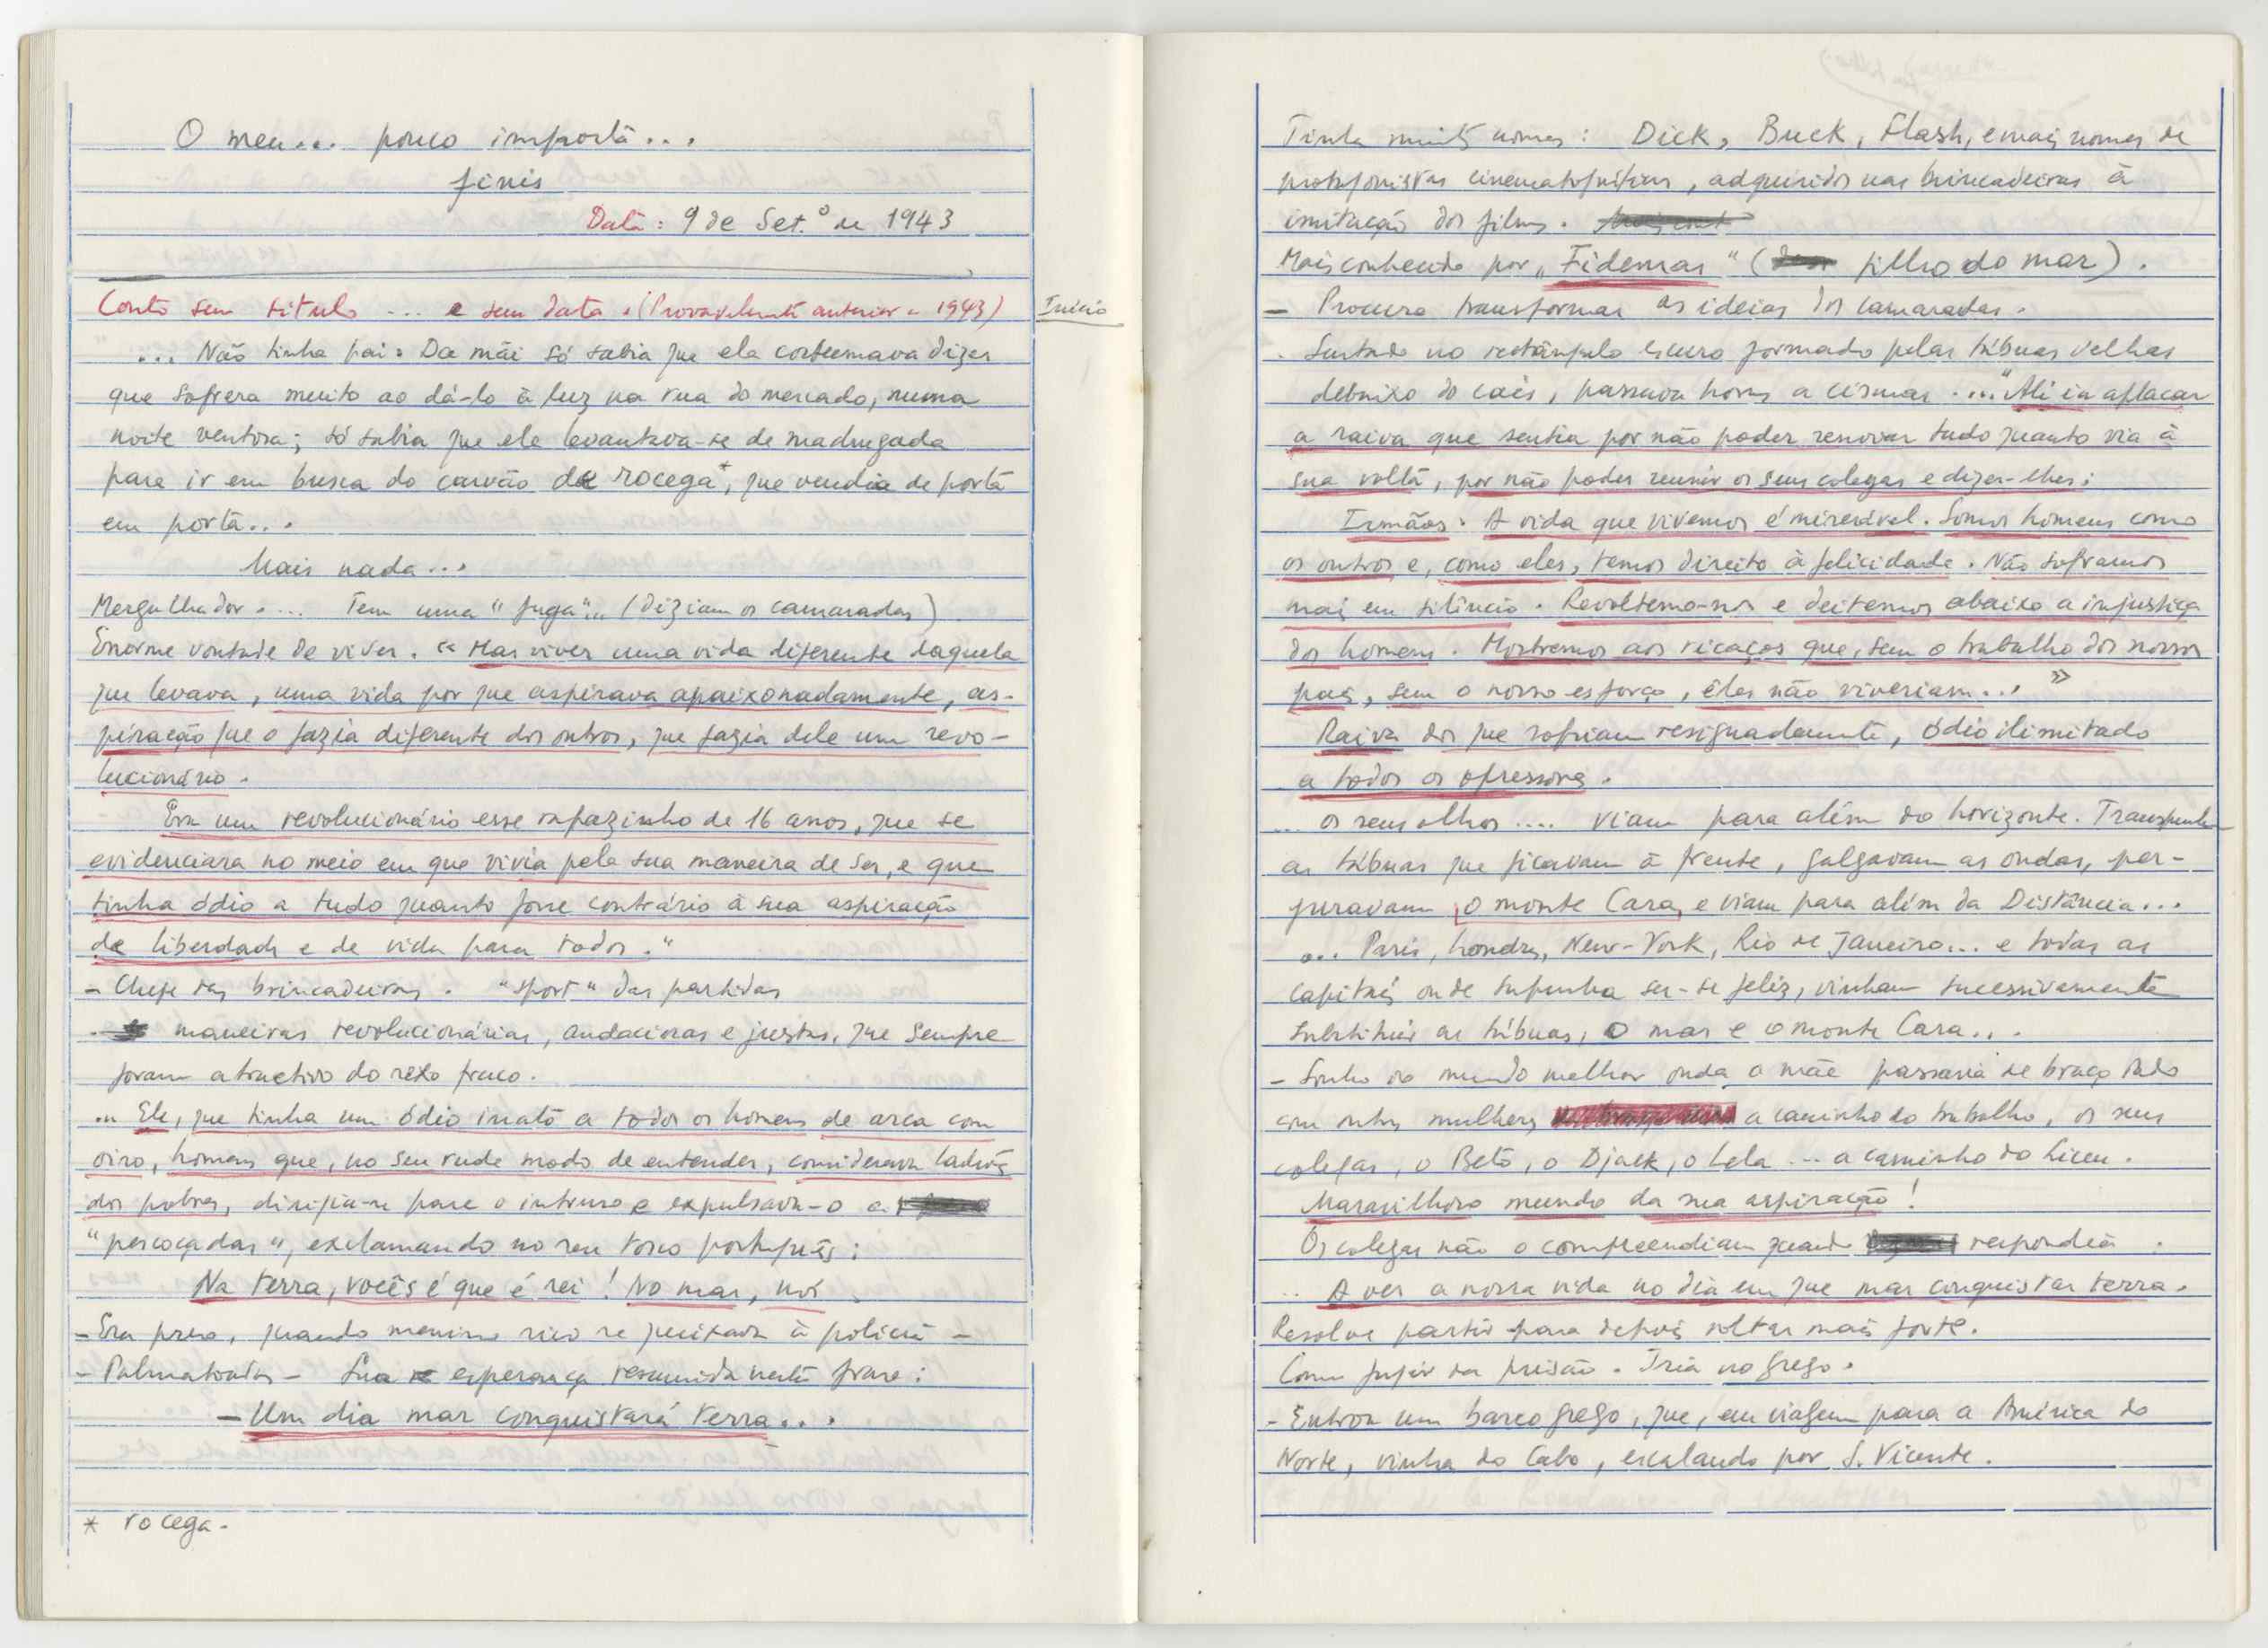 O meu... pouco importa...
finis
Data: 9 de Set.º de 1943
Conto sem titulo ... e sem data. (Provavelmente anterior a 1943)
Início
... Não tinha pai. Da mãi só sabia que ela costumava dizer
que sofrera muito ao dá-lo à luz na rua do mercado, numa
noite ventosa; só sabia que ele levantava-se de madrugada
para ir em busca do carvão de rocega*, que vendia de porta
em porta...
Mais nada...
Mergulhador.... Tem uma "fuga"... (diziam os camaradas)
Enorme vontade de viver. "Mas viver uma vida diferente daquela
que levava, uma vida por que aspirava apaixonadamente, as-
piração que o fazia diferente dos outros, que fazia dele um revo-
lucionário.
Era um revolucionário esse rapazinho de 16 anos, que se
evidenciara no meio em que vivia pela sua maneira de ser, e que
tinha ódio a tudo quanto fosse contrário à sua aspiração
de liberdade e de vida para todos."
- Chefe das brincadeiras. "sport" das partidas
maneiras revolucionárias, audaciosas e justas, que sempre
foram atractivo do sexo fraco.
... Ele, que tinha um ódio inato a todos os homens de arca com
oiro, homens que, no seu rude modo de entender, considerava ladrões
dos pobres, dirigia-se para o intruso e expulsava-o a
"pescoçadas", exclamando no seu tosco português:
Na terra, vocês é que é rei! No mar, nós.
- Era preso, quando menino rico se queixava à policia -
- Palmatoadas - Sua esperança resumida nesta frase:
- Um dia mar conquistará terra...
* rocega.
Tinha muitos nomes: Dick, Buck, Flash, e mais nomes de
protagonistas cinematográficos, adquiridos nas brincadeiras à
imitação dos films.
Mais conhecido por "Fidemar" (filho do mar).
- Procura transformar as ideias dos camaradas.
. Sentado no rectângulo escuro formado pelas tábuas velhas
debaixo do cais, passava horas a cismar. ... "Ali ia aplacar
a raiva que sentia por não poder renovar tudo quanto via à
sua volta, por não poder reunir os seus colegas e dizer-lhes:
Irmãos. A vida que vivemos é miserável. Somos homens como
os outros e, como eles, temos direito à felicidade. Não soframos
mais em silêncio. Revoltemo-nos e deitemos abaixo a injustiça
dos homens. Mostremos aos ricaços que, sem o trabalho dos nossos
pais, sem o nosso esforço, êles não viveriam..."
Raiva dos que sofriam resignadamente, ódio ilimitado
a todos os opressores.
... os seus olhos .... viam para além do horizonte. Transpunham
as tábuas que ficavam à frente, galgavam as ondas, per-
furavam o monte Cara, e viam para além da Distância...
... Paris, Londres, New-York, Rio de Janeiro... e todas as
capitais onde supunha ser-se feliz, vinham sucessivamente
substituir as tábuas, o mar e o monte Cara...
- Sonho do mundo melhor onde a mãe passaria de braço dado
com outras mulheres a caminho do trabalho, os seus
colegas, o Betó, o Djack, o Lela ... a caminho do Liceu.
Maravilhoso mundo da sua aspiração!
Os colegas não o compreendiam quando respondia.
.. A ver a nossa vida no dia em que mar conquistar terra.
Resolve partir para depois voltar mais forte.
Como fugir da prisão. Iria no grego.
- Entrou um barco grego, que, em viagem para a América do
Norte, vinha do Cabo, escalando por S. Vicente.